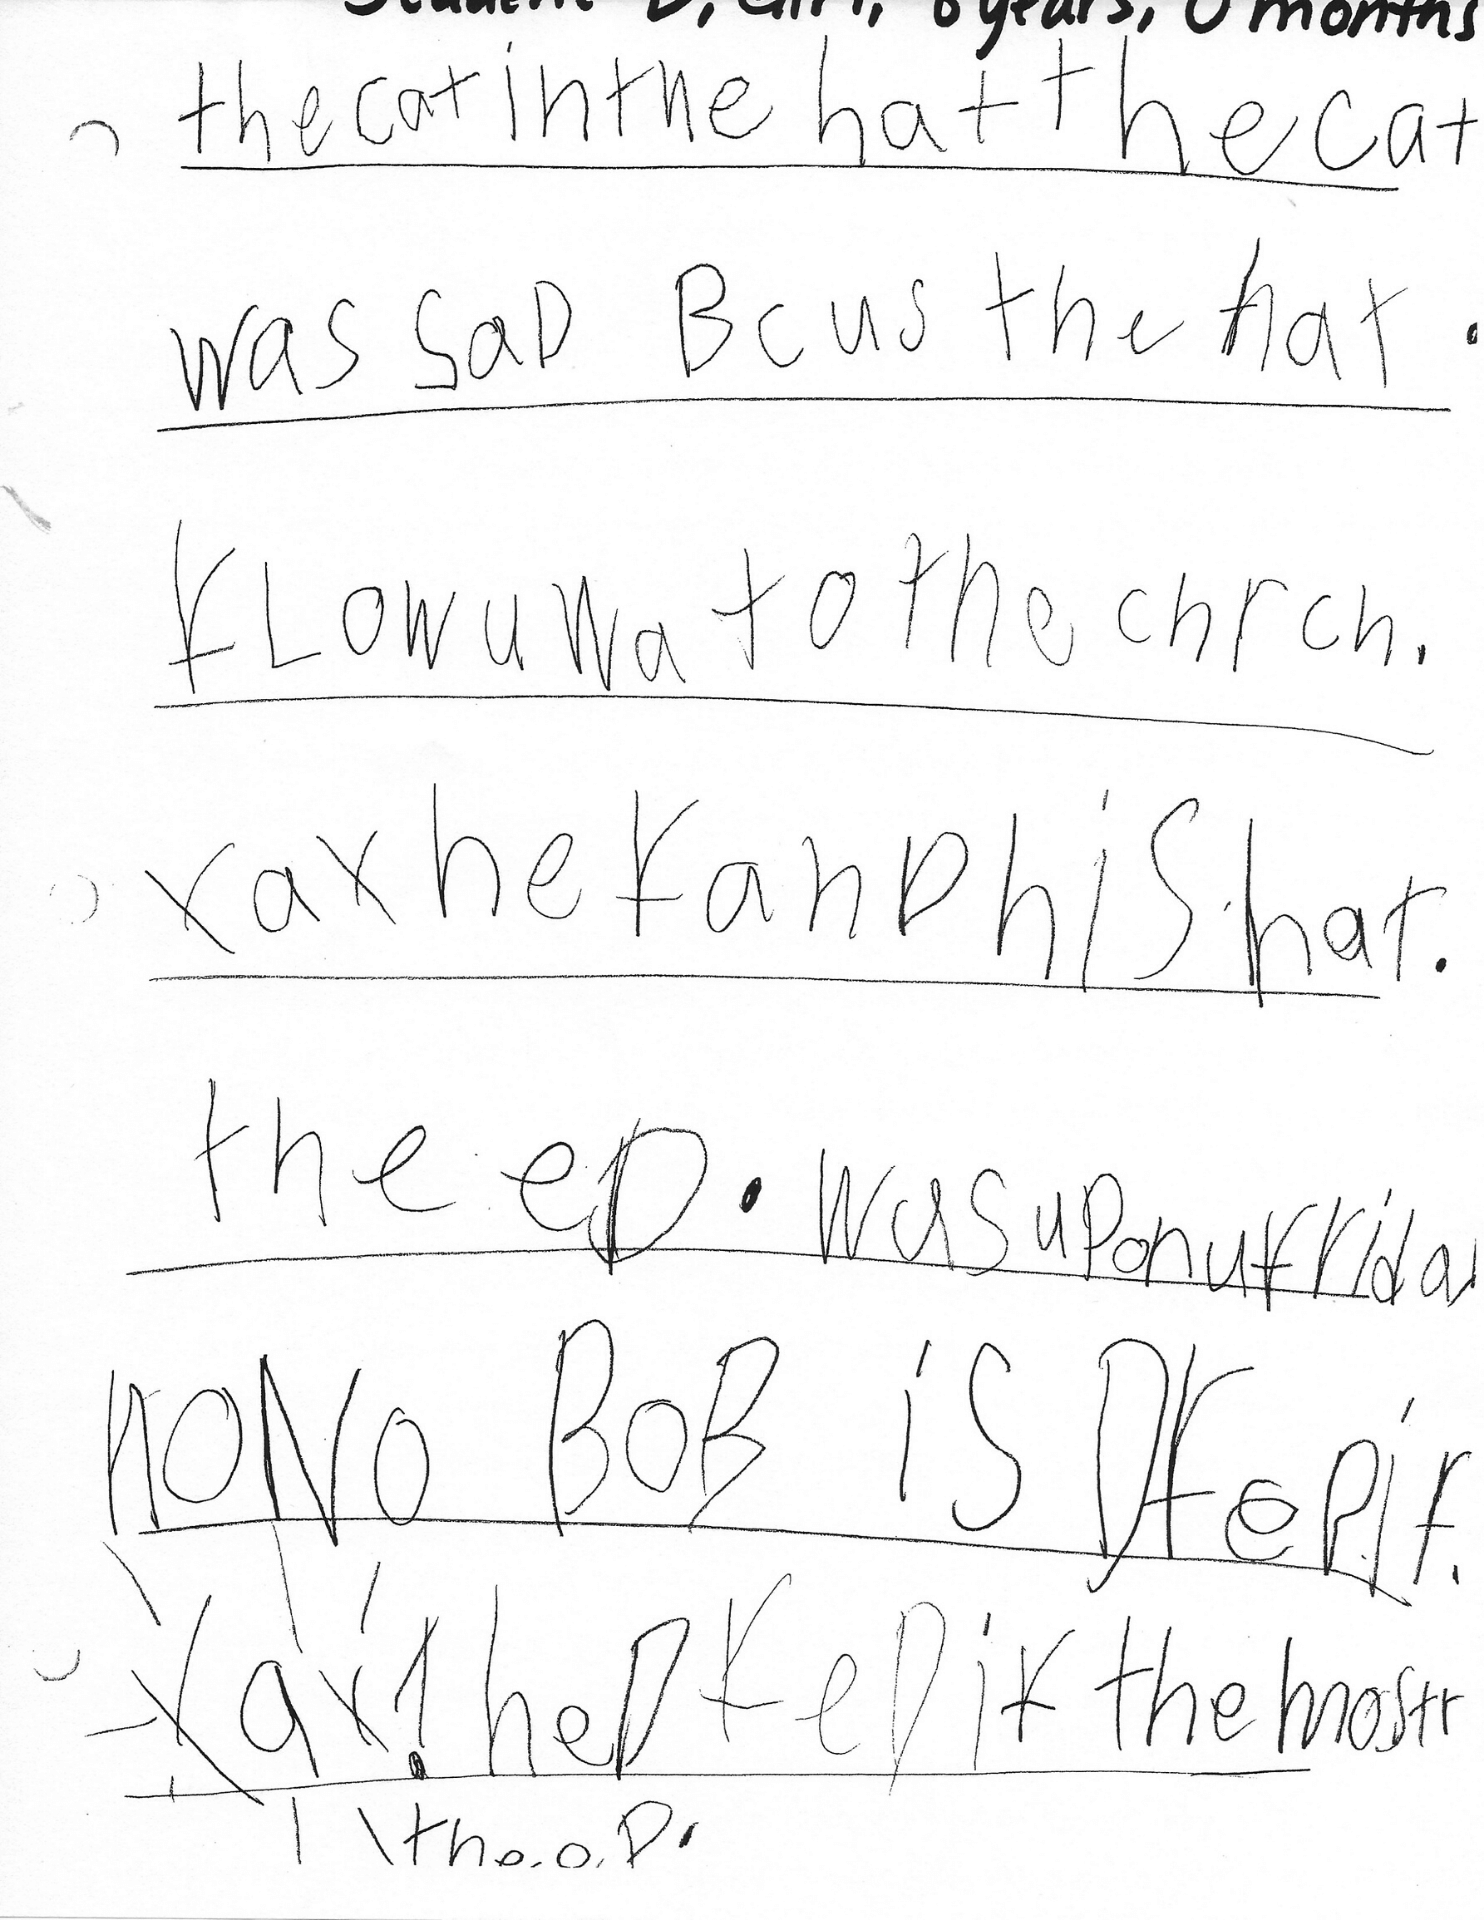 Student D, Girl, 6 years, 0 months
thecat inthe hat the cat
was saD Bcus the hat.
fLowuwa to the chrch.
xax he fanD his hat.
the eD. was uPon u frida
no No BoB is DfePit.
xax! heD fePit the mostr
the.e.D.